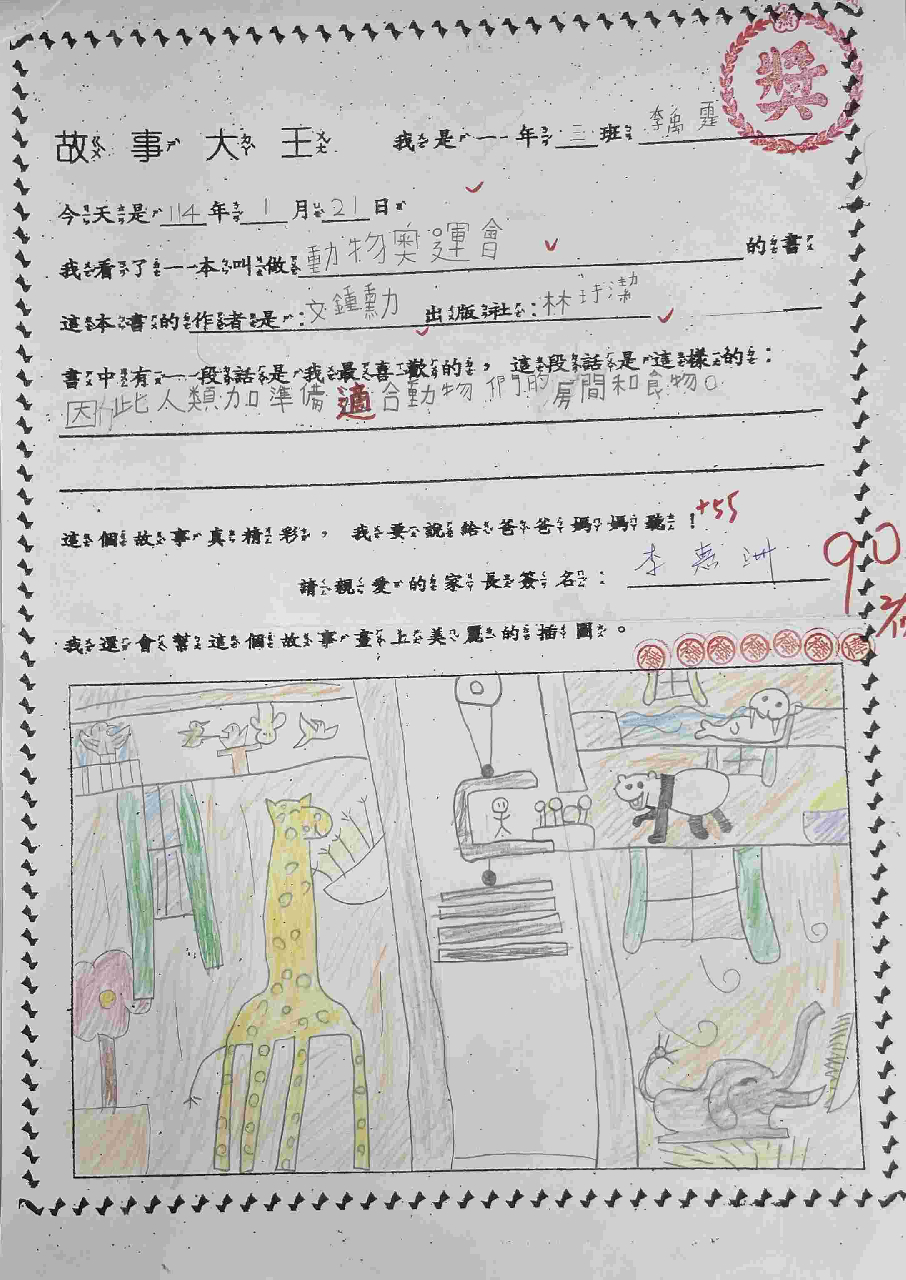 獎
故事大王 我是一年三班李禹霆
今天是114年1月21日
我看了一本叫做動物奧運會的書
這本書的作者是：文鍾勳 出版社：林玗潔
書中有一段話是我最喜歡的，這段話是這樣的：
因此人類加準備適合動物們的房間和食物。
這個故事真精彩，我要說給爸爸媽媽聽！+55
請親愛的家長簽名：李惠洲
90
我還會幫這個故事畫上美麗的插圖。